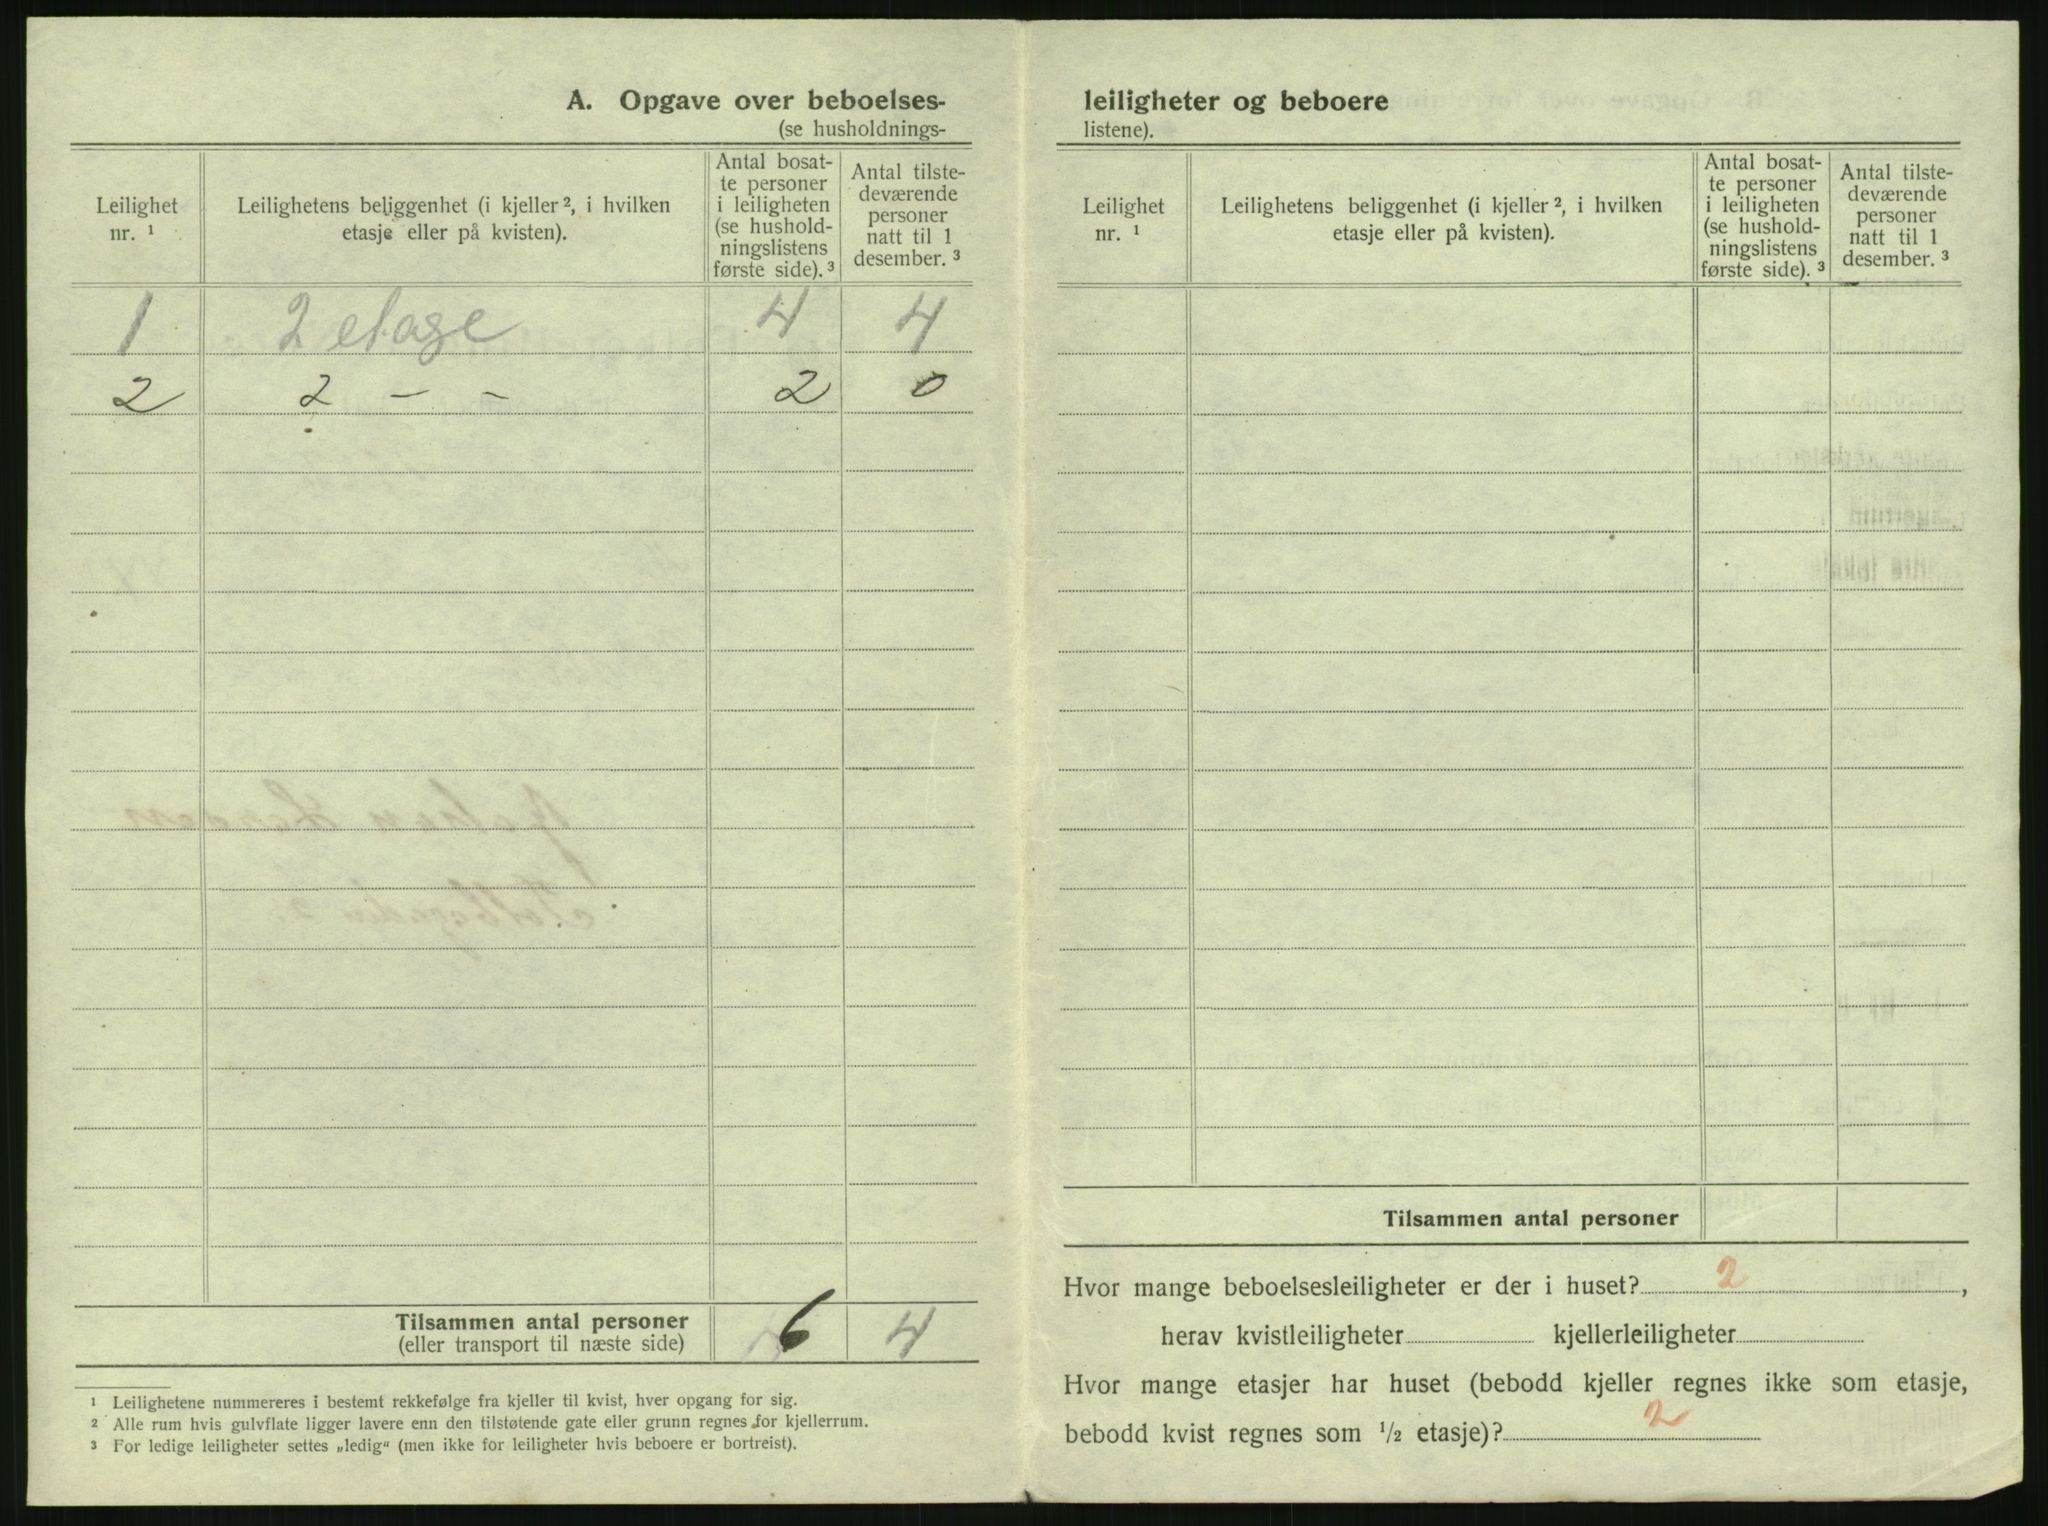 A. Opgave over beboelses-
(se husholdnings-
Leilighet nr. ¹
Leilighetens beliggenhet (i kjeller ², i hvilken etasje eller på kvisten).
Antal bosatte personer i leiligheten (se husholdningslistens første side). ³
Antal tilstedeværende personer natt til 1 desember. ³
1 2 etage 4 4
2 2 - - 2 0
Tilsammen antal personer 6 4
(eller transport til næste side)
¹ Leilighetene nummereres i bestemt rekkefølge fra kjeller til kvist, hver opgang for sig.
² Alle rum hvis gulvflate ligger lavere enn den tilstøtende gate eller grunn regnes for kjellerrum.
³ For ledige leiligheter settes „ledig“ (men ikke for leiligheter hvis beboere er bortreist).
leiligheter og beboere
listene).
Leilighet nr. ¹
Leilighetens beliggenhet (i kjeller ², i hvilken etasje eller på kvisten).
Antal bosatte personer i leiligheten (se husholdningslistens første side). ³
Antal tilstedeværende personer natt til 1 desember. ³
Tilsammen antal personer
Hvor mange beboelsesleiligheter er der i huset? 2 ,
herav kvistleiligheter kjellerleiligheter
Hvor mange etasjer har huset (bebodd kjeller regnes ikke som etasje,
bebodd kvist regnes som ½ etasje)? 2